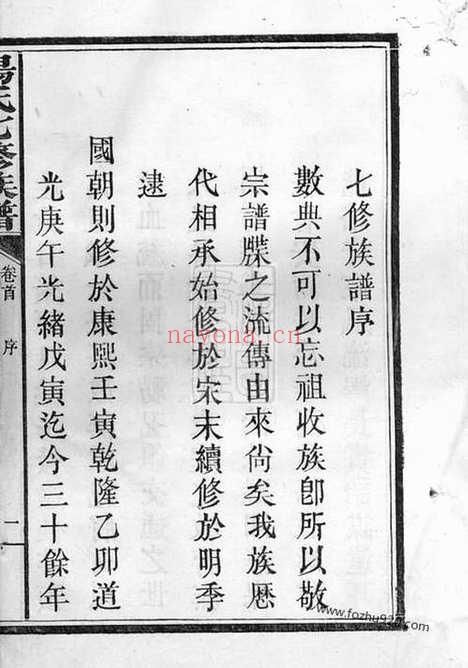 七修族譜序
數典不可以忘祖收族卽所以敬
宗譜牒之流傳由來尙矣我族歷
代相承始修於宋末續修於明季
逮
國朝則修於康熙壬寅乾隆乙卯道
光庚午光緒戊寅迄今三十餘年
楊氏七修族譜
卷首
序
二
nayona.cn
www.fozhu920.com